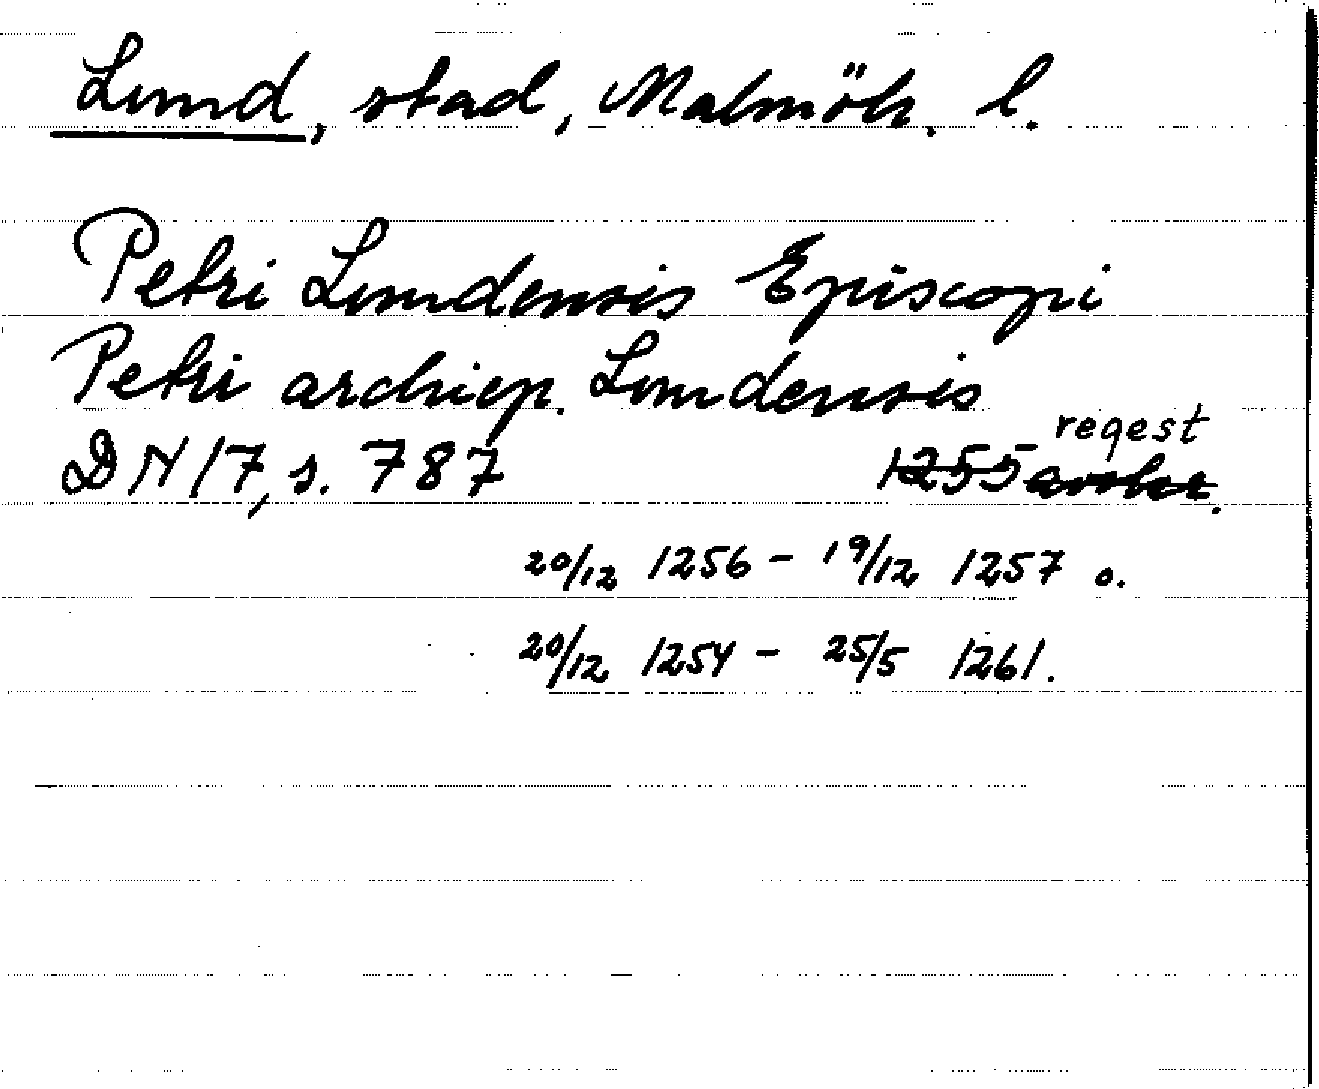 Lund, stad, Malmöh. l.
Petri Lundensis Episcopi
Petri archiep. Lundensis
regest
DN 17, s. 787 1255 avskr.
20/12 1256 - 19/12 1257 o.
20/12 1254 - 25/5 1261.